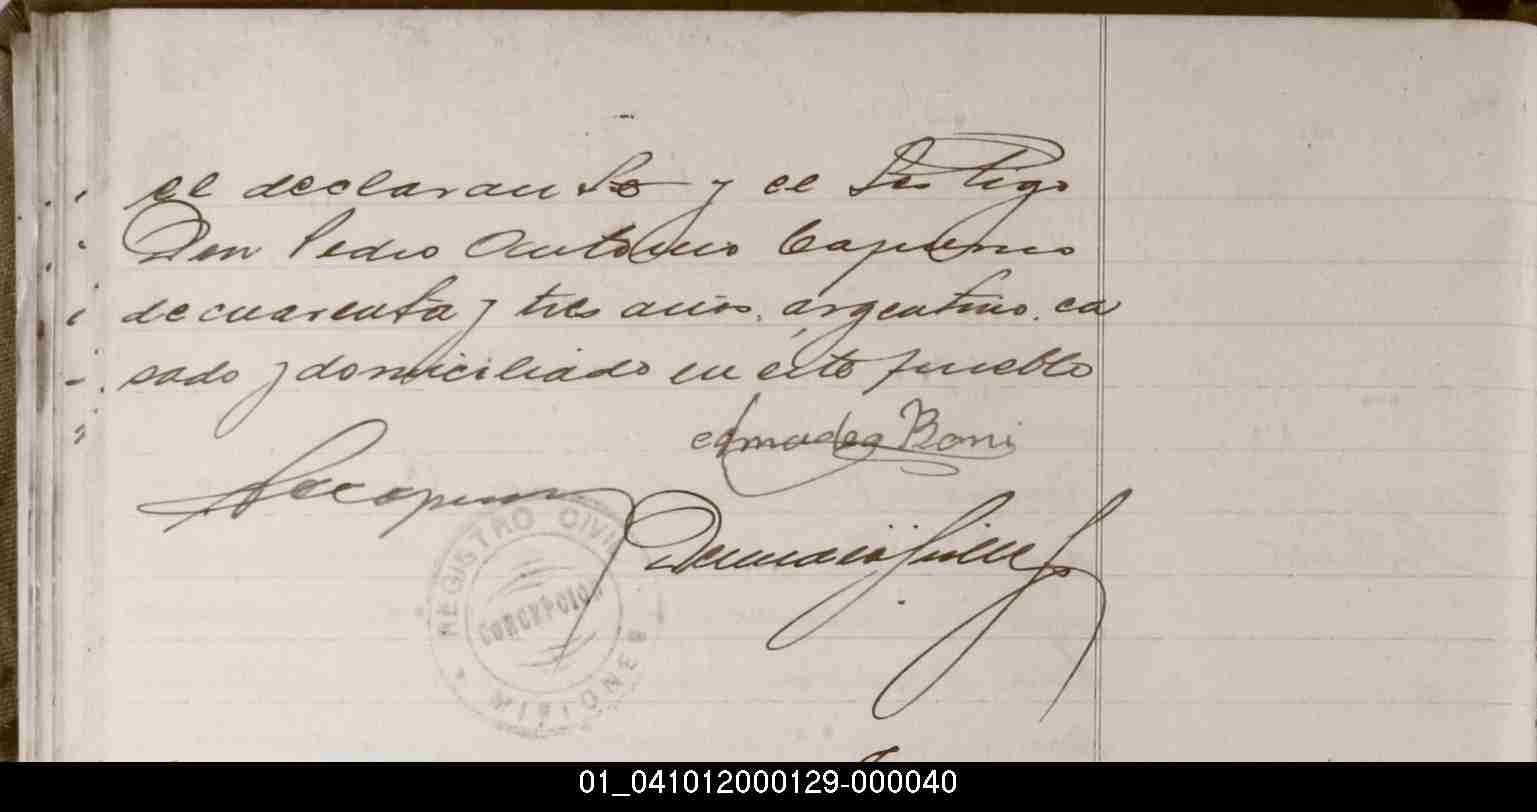 el declarante y el Testigo
Don Pedro Antonio Capurro
de cuarenta y tres años, argentino, ca
sado y domiciliado en este pueblo
Amadeo Boni
REGISTRO CIVIL
CONCEPCION
MISIONES
01_041012000129-000040